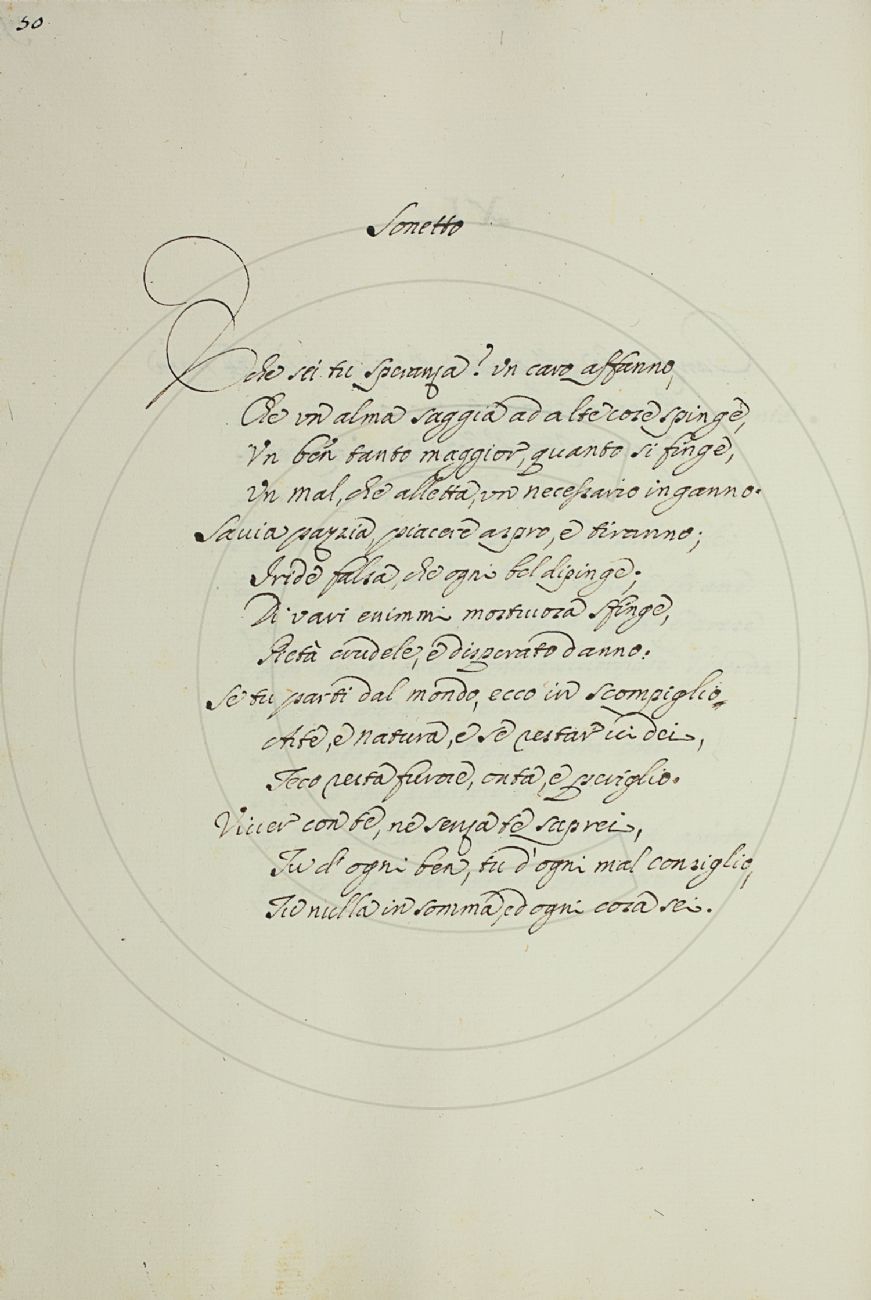 50
Sonetto
E che sei tu speranza? Un caro affanno,
Che vn alma saggia ad alte cose spinge,
Vn ben tanto maggior, quanto si finge,
Vn mal, che alletta, vn necessario inganno.
Savia pazzia, piacere aspro, e tiranno;
Iride falsa, che ogni bel dipinge;
Di varj enimmi mostruosa sfinge,
Pietà crudele, e disperato danno.
Se tu parti dal mondo, ecco in scompiglio
Arte, e Natura, e se restar ci dei,
Teco resta furore, onta, e periglio.
Viver con te, ne senza te saprei,
Tu d'ogni ben, tu d'ogni mal consiglio,
Tu nulla in somma, ed ogni cosa sei.